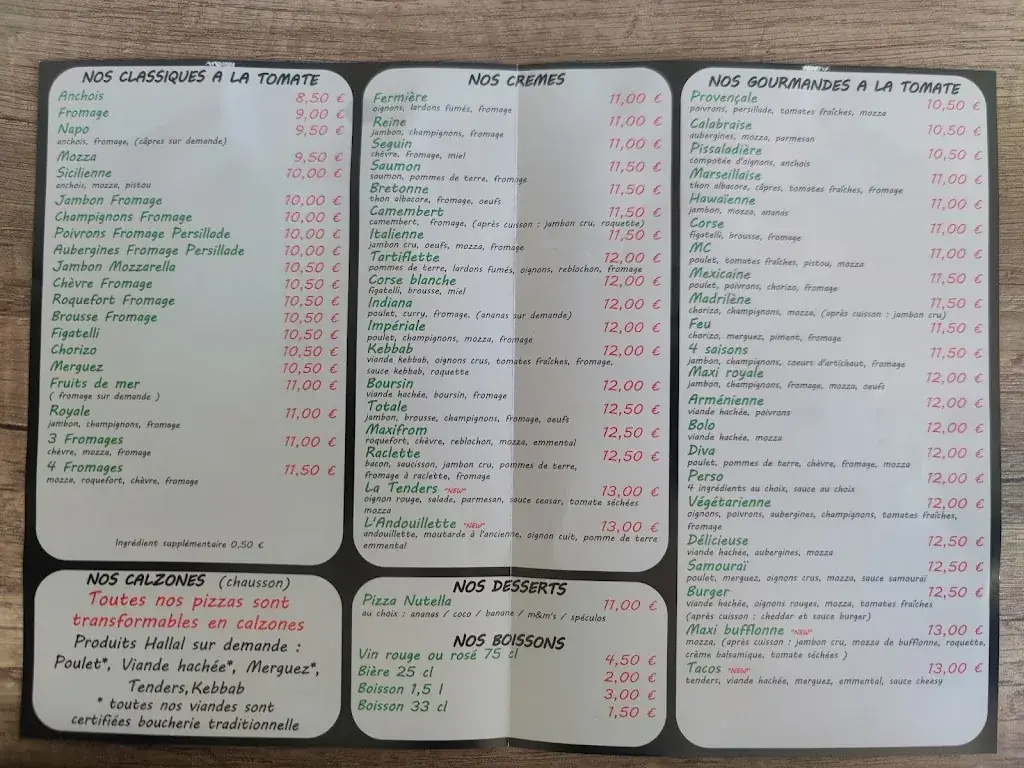 NOS CLASSIQUES A LA TOMATE
Anchois 8,50 €
Fromage 9,00 €
Napo 9,50 €
anchois, fromage, (câpres sur demande)
Mozza 9,50 €
Sicilienne 10,00 €
anchois, mozza, pistou
Jambon Fromage 10,00 €
Champignons Fromage 10,00 €
Poivrons Fromage Persillade 10,00 €
Aubergines Fromage Persillade 10,00 €
Jambon Mozzarella 10,50 €
Chèvre Fromage 10,50 €
Roquefort Fromage 10,50 €
Brousse Fromage 10,50 €
Figatelli 10,50 €
Chorizo 10,50 €
Merguez 10,50 €
Fruits de mer 11,00 €
( fromage sur demande )
Royale 11,00 €
jambon, champignons, fromage
3 Fromages 11,00 €
chèvre, mozza, fromage
4 Fromages 11,50 €
mozza, roquefort, chèvre, fromage
Ingrédient supplémentaire 0,50 €
NOS CALZONES (chausson)
Toutes nos pizzas sont
transformables en calzones
Produits Hallal sur demande :
Poulet*, Viande hachée*, Merguez*,
Tenders,Kebbab
* toutes nos viandes sont
certifiées boucherie traditionnelle
NOS CREMES
Fermière 11,00 €
oignons, lardons fumés, fromage
Reine 11,00 €
jambon, champignons, fromage
Seguin 11,00 €
chèvre, fromage, miel
Saumon 11,50 €
saumon, pommes de terre, fromage
Bretonne 11,50 €
thon albacore, fromage, oeufs
Camembert 11,50 €
camembert, fromage, (après cuisson : jambon cru, roquette)
Italienne 11,50 €
jambon cru, oeufs, mozza, fromage
Tartiflette 12,00 €
pommes de terre, lardons fumés, oignons, reblochon, fromage
Corse blanche 12,00 €
figatelli, brousse, miel
Indiana 12,00 €
poulet, curry, fromage, (ananas sur demande)
Impériale 12,00 €
poulet, champignons, mozza, fromage
Kebbab 12,00 €
viande kebbab, oignons crus, tomates fraîches, fromage,
sauce kebbab, roquette
Boursin 12,00 €
viande hachée, boursin, fromage
Totale 12,50 €
jambon, brousse, champignons, fromage, oeufs
Maxifrom 12,50 €
roquefort, chèvre, reblochon, mozza, emmental
Raclette 12,50 €
bacon, saucisson, jambon cru, pommes de terre,
fromage à raclette, fromage
La Tenders "NEW" 13,00 €
oignon rouge, salade, parmesan, sauce ceasar, tomate séchées
mozza
L'Andouillette "NEW" 13,00 €
andouillette, moutarde à l'ancienne, oignon cuit, pomme de terre
emmental
NOS DESSERTS
Pizza Nutella 11,00 €
au choix : ananas / coco / banane / m&m's / spéculos
NOS BOISSONS
Vin rouge ou rosé 75 cl 4,50 €
Bière 25 cl 2,00 €
Boisson 1,5 l 3,00 €
Boisson 33 cl 1,50 €
NOS GOURMANDES A LA TOMATE
Provençale 10,50 €
poivrons, persillade, tomates fraîches, mozza
Calabraise 10,50 €
aubergines, mozza, parmesan
Pissaladière 10,50 €
compotée d'oignons, anchois
Marseillaise 11,00 €
thon albacore, câpres, tomates fraîches, fromage
Hawaïenne 11,00 €
jambon, mozza, ananas
Corse 11,00 €
figatelli, brousse, fromage
MC 11,00 €
poulet, tomates fraîches, pistou, mozza
Mexicaine 11,50 €
poulet, poivrons, chorizo, fromage
Madrilène 11,50 €
chorizo, champignons, mozza, (après cuisson : jambon cru)
Feu 11,50 €
chorizo, merguez, piment, fromage
4 saisons 11,50 €
jambon, champignons, coeurs d'artichaut, fromage
Maxi royale 12,00 €
jambon, champignons, fromage, mozza, oeufs
Arménienne 12,00 €
viande hachée, poivrons
Bolo 12,00 €
viande hachée, mozza
Diva 12,00 €
poulet, pommes de terre, chèvre, fromage, mozza
Perso 12,00 €
4 ingrédients au choix, sauce au choix
Végétarienne 12,00 €
oignons, poivrons, aubergines, champignons, tomates fraîches,
fromage
Délicieuse 12,50 €
viande hachée, aubergines, mozza
Samouraï 12,50 €
poulet, merguez, oignons crus, mozza, sauce samouraï
Burger 12,50 €
viande hachée, oignons rouges, mozza, tomates fraîches
(après cuisson : cheddar et sauce burger)
Maxi bufflonne "NEW" 13,00 €
mozza, (après cuisson : jambon cru, mozza de bufflonne, roquette,
crème balsamique, tomate séchées )
Tacos "NEW" 13,00 €
tenders, viande hachée, merguez, emmental, sauce cheasy